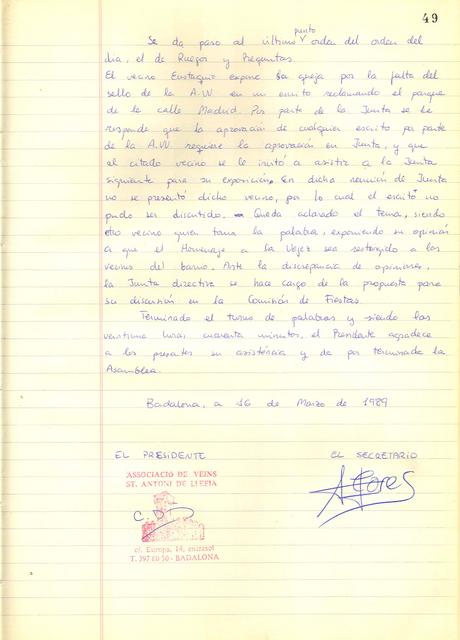 49
punto
Se da paso al último orden del orden del
día, el de Ruegos y Preguntas.
El vecino Eustaquio expone su queja por la falta del
sello de la A.VV en un escrito reclamando el parque
de la calle Madrid. Por parte de la Junta se le
responde que la aprovación de cualquier escrito por parte
de la A.VV. requiere la aprovación en Junta, y que
al citado vecino se le invitó a asistir a la Junta
siguiente para su exposición. En dicha reunión de Junta
no se presentó dicho vecino, por lo cual el escrito no
pudo ser discutido. - Queda aclarado el tema, siendo
otro vecino quien toma la palabra, exponiendo su opinión
a que el Homenaje a la Vejez sea restringido a los
vecinos del barrio. Ante la discrepancia de opiniones,
la Junta directiva se hace cargo de la propuesta para
su discusión en la Comisión de Fiestas.
Terminado el turno de palabras y siendo las
veintiuna horas cuarenta minutos, el Presidente agradece
a los presentes su asistencia y da por terminada la
Asamblea.
Badalona, a 16 de Marzo de 1989
EL PRESIDENTE
EL SECRETARIO
ASSOCIACIÓ DE VEINS
ST. ANTONI DE LLEFIA
c/. Europa, 14, entresol
T. 397 60 50 - BADALONA